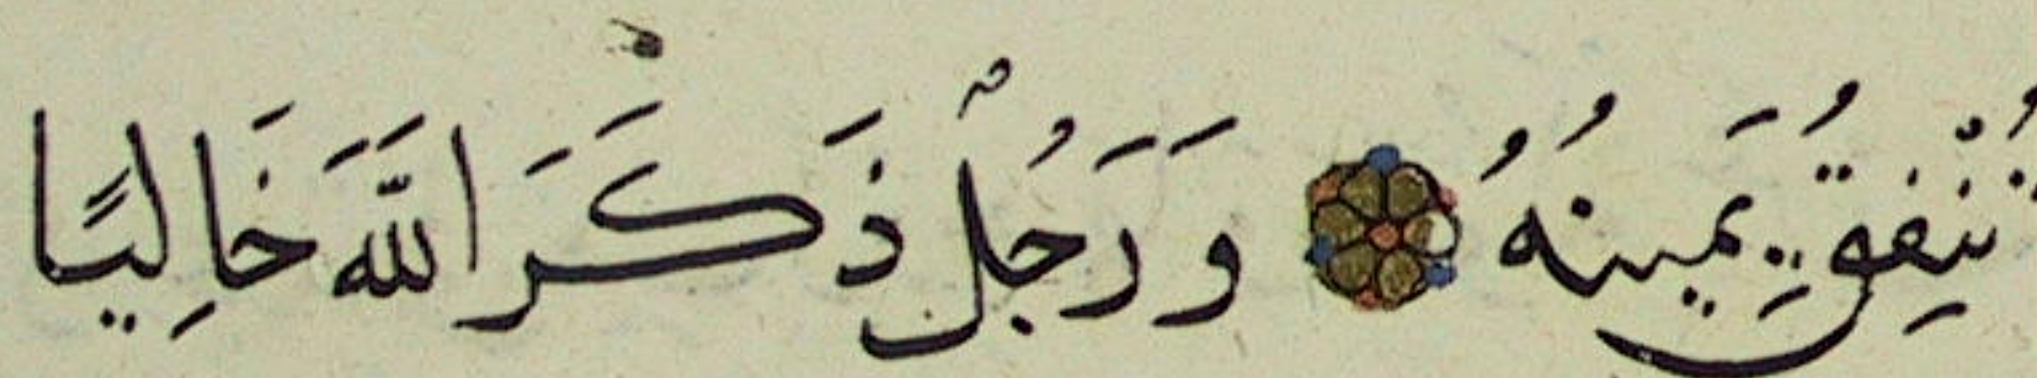 تُنْفِقُ يَمِينُهُ وَرَجُلٌ ذَكَرَ اللَّهَ خَالِيًا